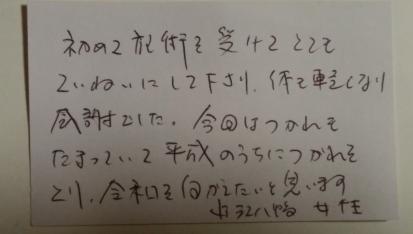 初めて施術を受けてとても
ていねいにして下さり、体も軽くなり
感謝でした。今回はつかれも
たまっていて平成のうちにつかれを
とり、令和を向かえたいと思います
八幡 女性